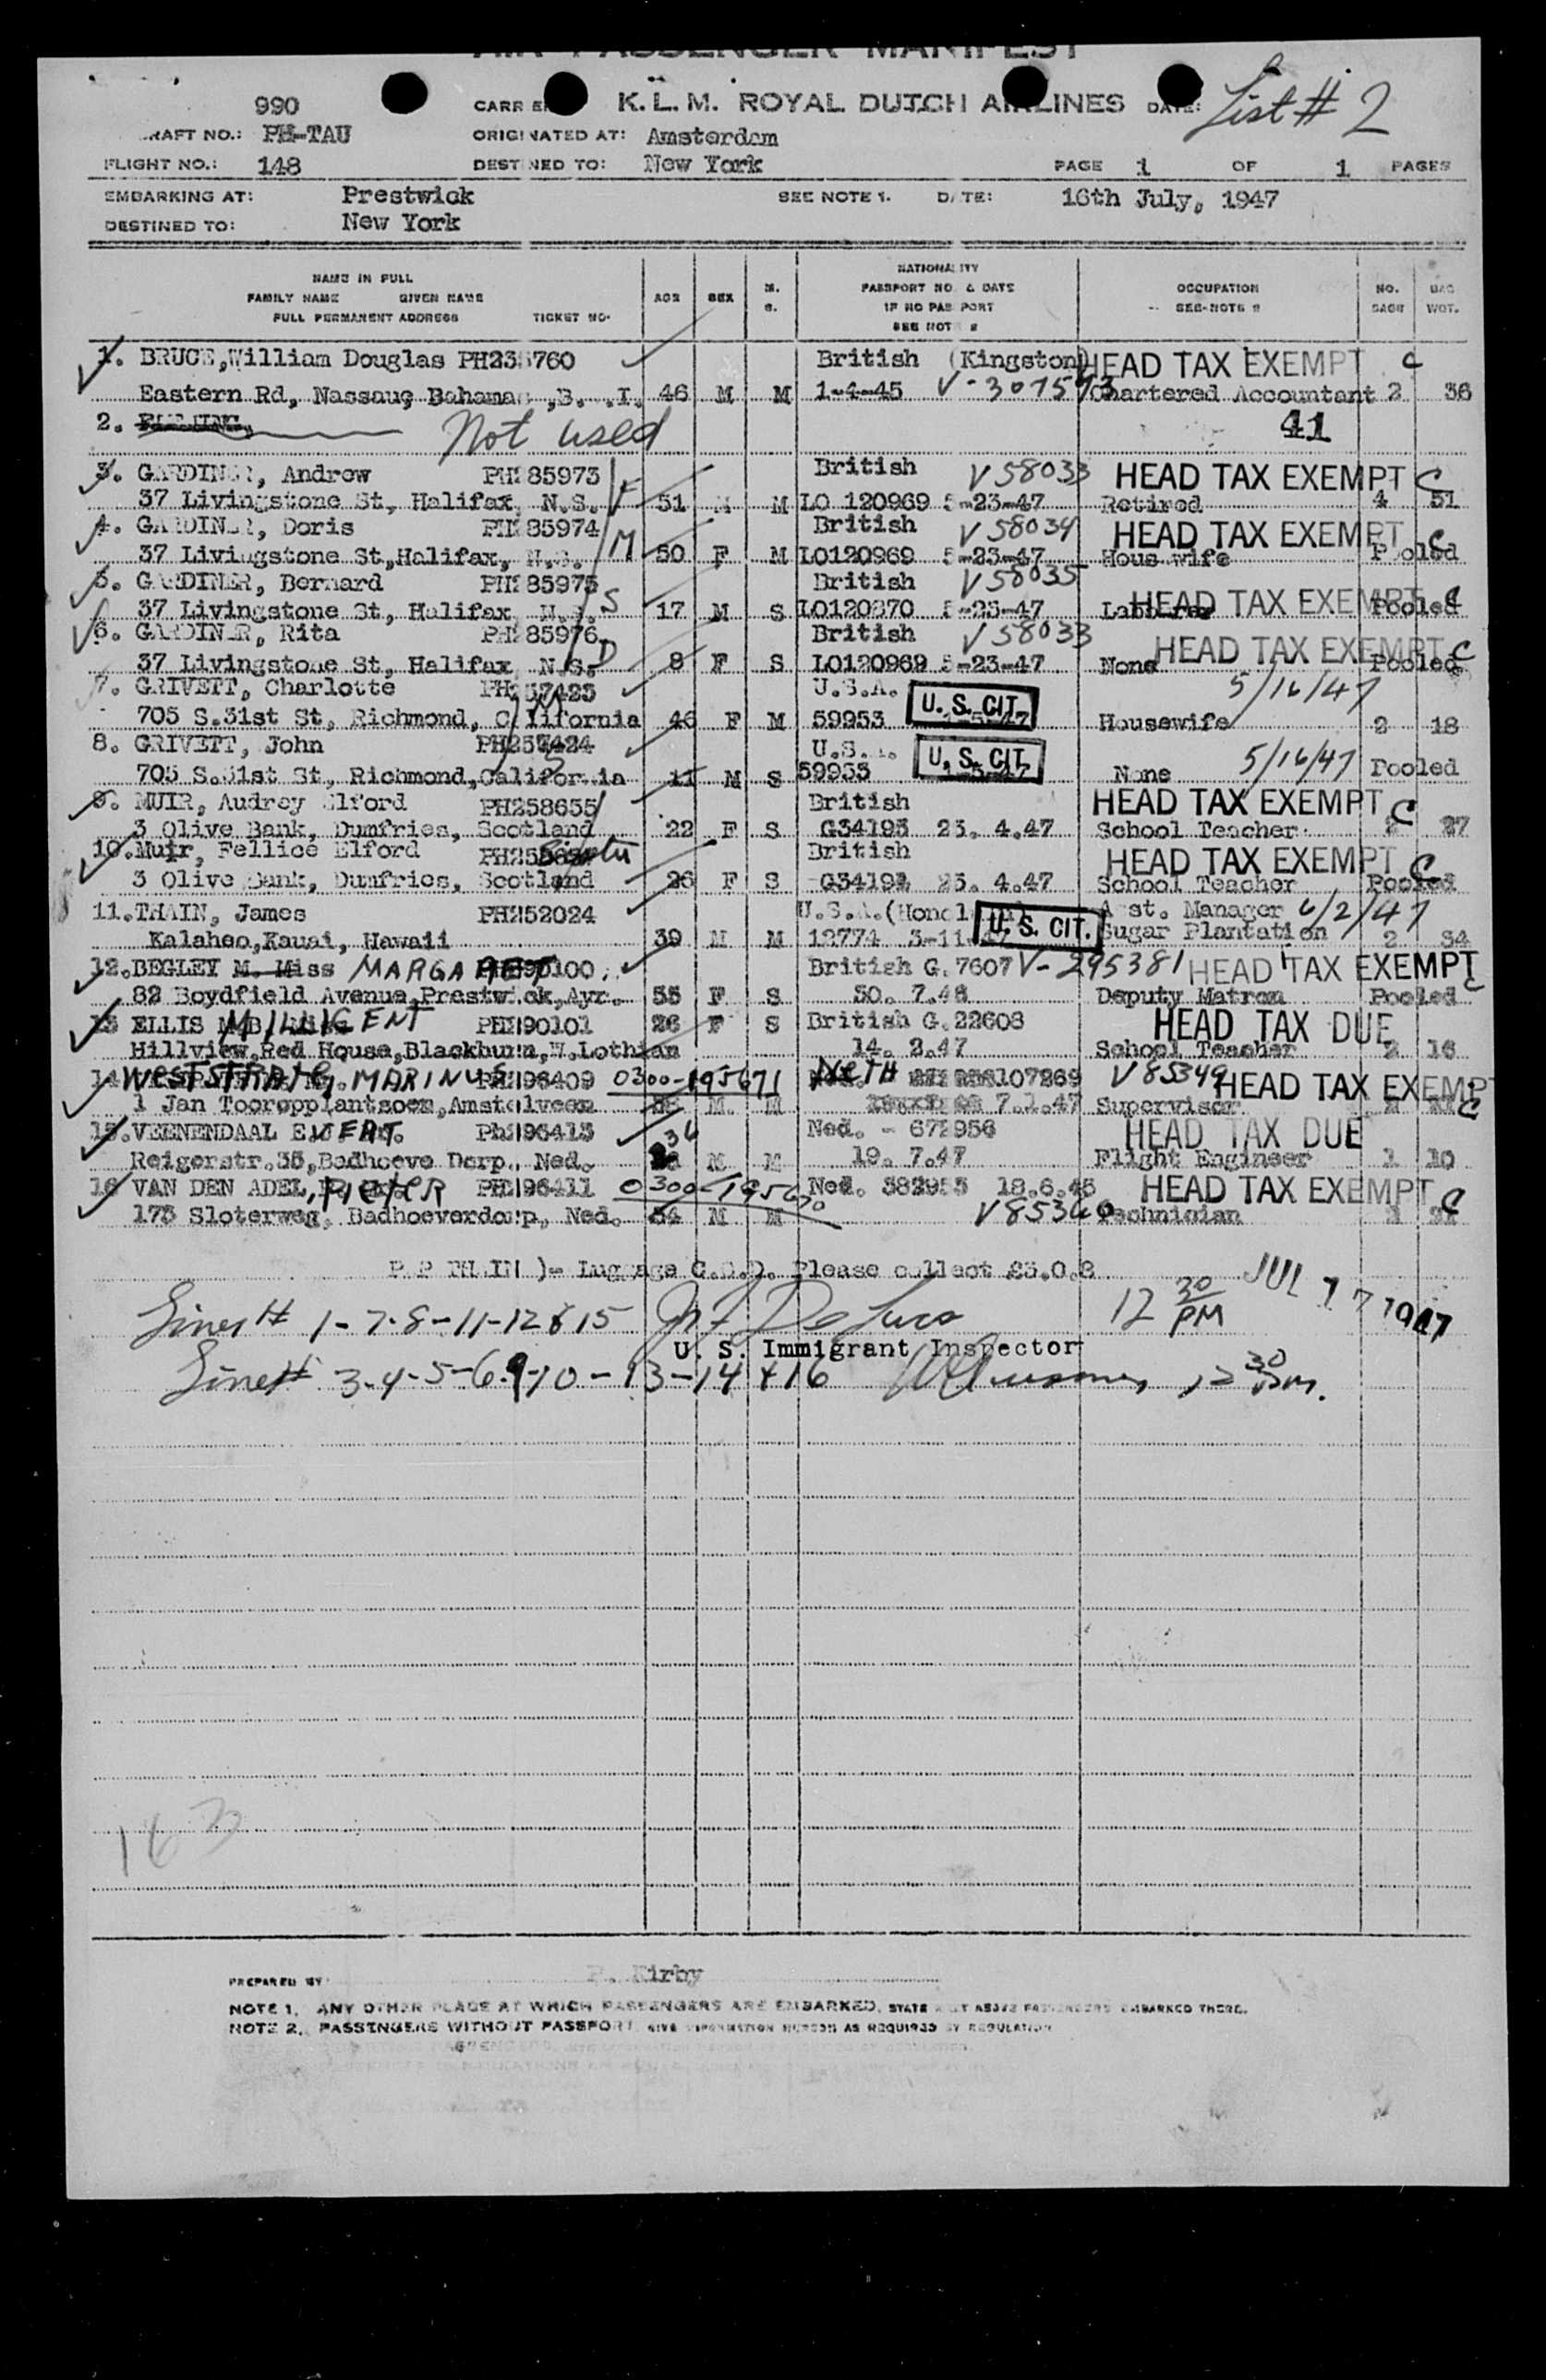 AIR PASSENGER MANIFEST
990 CARRIER K.L.M. ROYAL DUTCH AIRLINES DATE: List # 2
RAFT NO.: PH-TAU ORIGINATED AT: Amsterdam
FLIGHT NO.: 148 DESTINED TO: New York PAGE 1 OF 1 PAGES
EMBARKING AT: Prestwick SEE NOTE 1. DATE: 16th July, 1947
DESTINED TO: New York
NAME IN FULL
FAMILY NAME GIVEN NAME
FULL PERMANENT ADDRESS TICKET NO. AGE SEX M. S.
NATIONALITY
PASSPORT NO. & DATE
IF NO PASSPORT
SEE NOTE 2
OCCUPATION
SEE NOTE 2
NO. BAGS BAG WGT.
1. BRUCE, William Douglas PH235760 British (Kingston) HEAD TAX EXEMPT C
Eastern Rd, Nassau, Bahamas, B. .I. 46 M M 1-4-45 V-307573 Chartered Accountant 2 36
2. Not used 41
3. GARDINER, Andrew 85973 F British V58033 HEAD TAX EXEMPT C
37 Livingstone St, Halifax, N.S. 51 M LO 120969 5-23-47 Retired 4 51
4. GARDINER, Doris 85974 M British V58034 HEAD TAX EXEMPT C
37 Livingstone St, Halifax, N.S. 50 F M LO120969 5-23-47 Housewife Pooled
5. GARDINER, Bernard 85975 S British V58035
37 Livingstone St, Halifax, N.S. 17 M S LO120970 5-23-47 Labourer HEAD TAX EXEMPT Pooled C
6. GARDINER, Rita 85976 D British V58033
37 Livingstone St, Halifax N.S. 8 F S LO120969 5-23-47 None HEAD TAX EXEMPT Pooled C
7. GRIVETT, Charlotte PH257423 U.S.A. 5/16/47
705 S.31st St, Richmond, California 46 F M 59953 U. S. CIT. Housewife 2 18
8. GRIVETT, John PH257424 U.S.A. 5/16/47
705 S.31st St, Richmond, California 11 M S 59953 U. S. CIT. None Pooled
9. MUIR, Audrey Elford PH258655 British HEAD TAX EXEMPT C
3 Olive Bank, Dumfries, Scotland 22 F S G34193 23. 4.47 School Teacher 27
10. Muir, Fellice Elford British HEAD TAX EXEMPT C
3 Olive Bank, Dumfries, Scotland 26 F S G34192 23. 4.47 School Teacher Pooled
11. THAIN, James PH252024 U.S.A.(Honolulu) Asst. Manager 6/2/47
Kalaheo, Kauai, Hawaii 39 M M 12774 3-11-47 U. S. CIT. Sugar Plantation 2 34
12. BEGLEY M. Miss MARGARET 90100 British G.7607 V-295381 HEAD TAX EXEMPT C
82 Boydfield Avenue, Prestwick, Ayr. 35 F S 30. 7.46 Deputy Matron Pooled
13 ELLIS MILLICENT 90101 26 F S British G.22608 HEAD TAX DUE
Hillview, Red House, Blackburn, W.Lothian 14. 2.47 School Teacher 2 16
14. WESTSTRATE, MARINUS 96409 0300-195671 NETH 107269 V85349 HEAD TAX EXEMPT
1 Jan Tooropplantsoen, Amstelveen M. M 7.1.47 Supervisor C
15. VEENENDAAL EVERT. 96413 Ned. - 672956 HEAD TAX DUE
Reigerstr.35, Badhoeve Dorp, Ned. 36 M M 19. 7.47 Flight Engineer 1 10
16 VAN DEN ADEL, PIETER 96411 0300-195670 Ned. 18.6.46 HEAD TAX EXEMPT C
173 Sloterweg, Badhoeverdorp, Ned. 34 M M Technician
Luggage C.O.D. Please collect £5.0.8
Lines # 1-7-8-11-12 & 15 De Luca 12 30 PM JUL 17 1947
U. S. Immigrant Inspector
Line # 3-4-5-6-9-10-13-14 + 16 12 30 pm.
163
PREPARED BY Kirby
NOTE 1. ANY OTHER PLACE AT WHICH PASSENGERS ARE EMBARKED, STATE EMBARKED THERE.
NOTE 2. PASSENGERS WITHOUT PASSPORT GIVE INFORMATION HEREON AS REQUIRED BY REGULATION